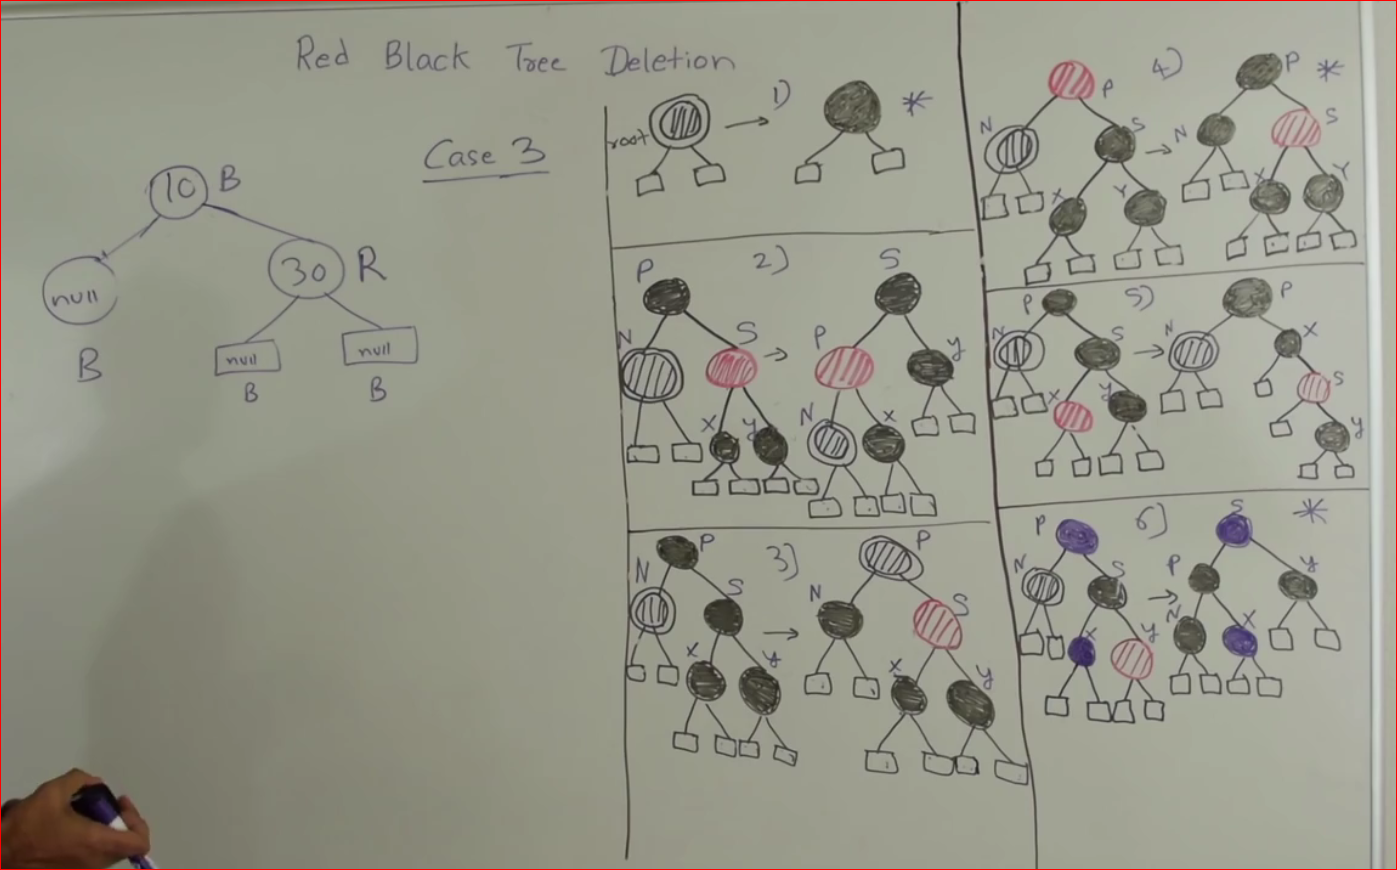 Red Black Tree Deletion
Case 3
10 B
null
B
30 R
null
B
null
B
root
1)
*
2)
P
N
S
X
y
S
P
y
N
X
3)
P
N
S
X
y
P
N
S
X
y
4)
P
N
S
X
Y
P
*
N
S
X
Y
5)
P
N
S
X
y
P
N
X
S
y
6)
P
N
S
X
y
S
*
P
y
N
X